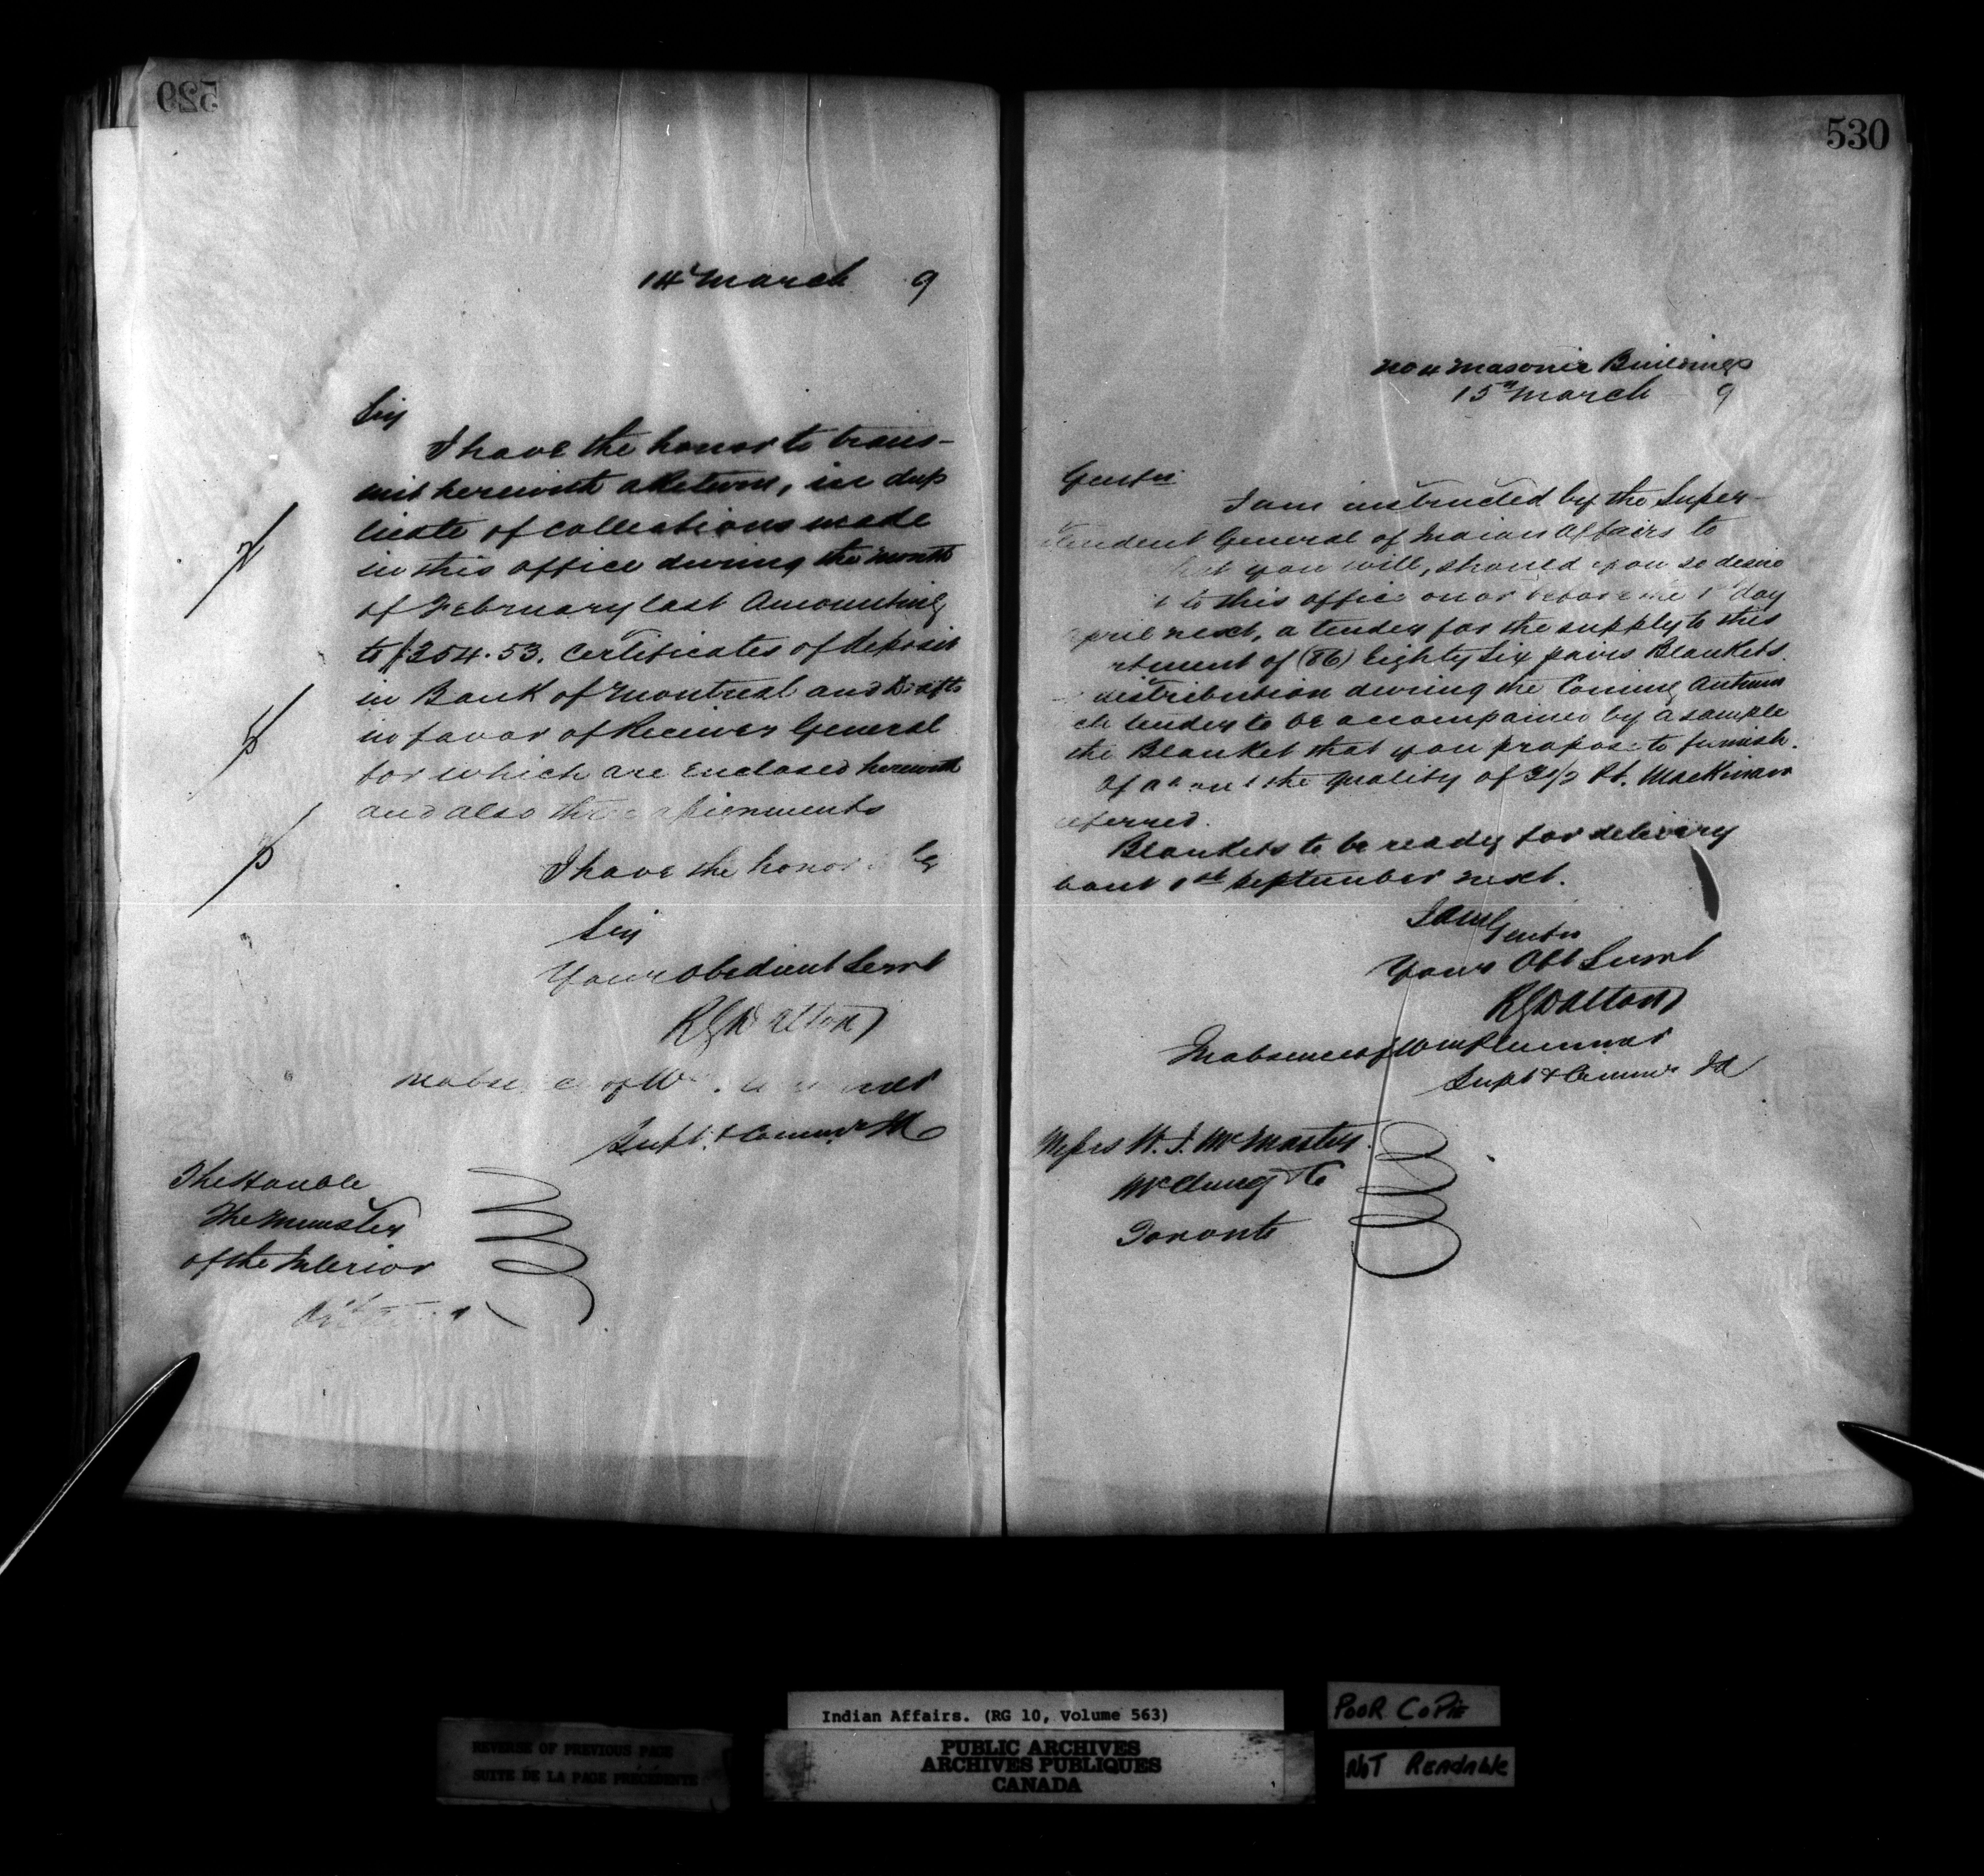 529
14th March 9
Sir
I have the honor to trans-
mit herewith a Return, in dup
licate of collections made
in this office during the month
of February last Amounting
to $354.53. Certificates of deposit
in Bank of Montreal and Drafts
in favor of Receiver General
for which are Enclosed herewith
and also three assignments
I have the honor
Sir
Your obedient Servt
RGDalton
of W
Supt. & Commr
The Honble
The Minister
of the Interior
530
No 4 Masonic Buildings
15th March 9
Gentn
I am instructed by the Super-
tendent General of Indian Affairs to
that you will, should you so desire
to this office on or before the 1st day
April next, a tender for the supply to this
rtment of (86) Eighty Six pairs Blankets.
distribution during the Coming Autumn
ch tender to be accompanied by a sample
the Blanket that you propose to furnish.
of about the quality of 3 1/2 Pt. Mackinaw
eferred.
Blankets to be ready for delivery
bout 1st September next.
I am Gentn
Your Obt Servt
RGDalton
In absence of Wm Plummer
Supt & Commr
Messrs W. J. McMaster
McClung & Co
Toronto
Indian Affairs. (RG 10, Volume 563)
PUBLIC ARCHIVES
ARCHIVES PUBLIQUES
CANADA
REVERSE OF PREVIOUS PAGE
SUITE DE LA PAGE PRÉCÉDENTE
POOR COPIE
NOT Readable